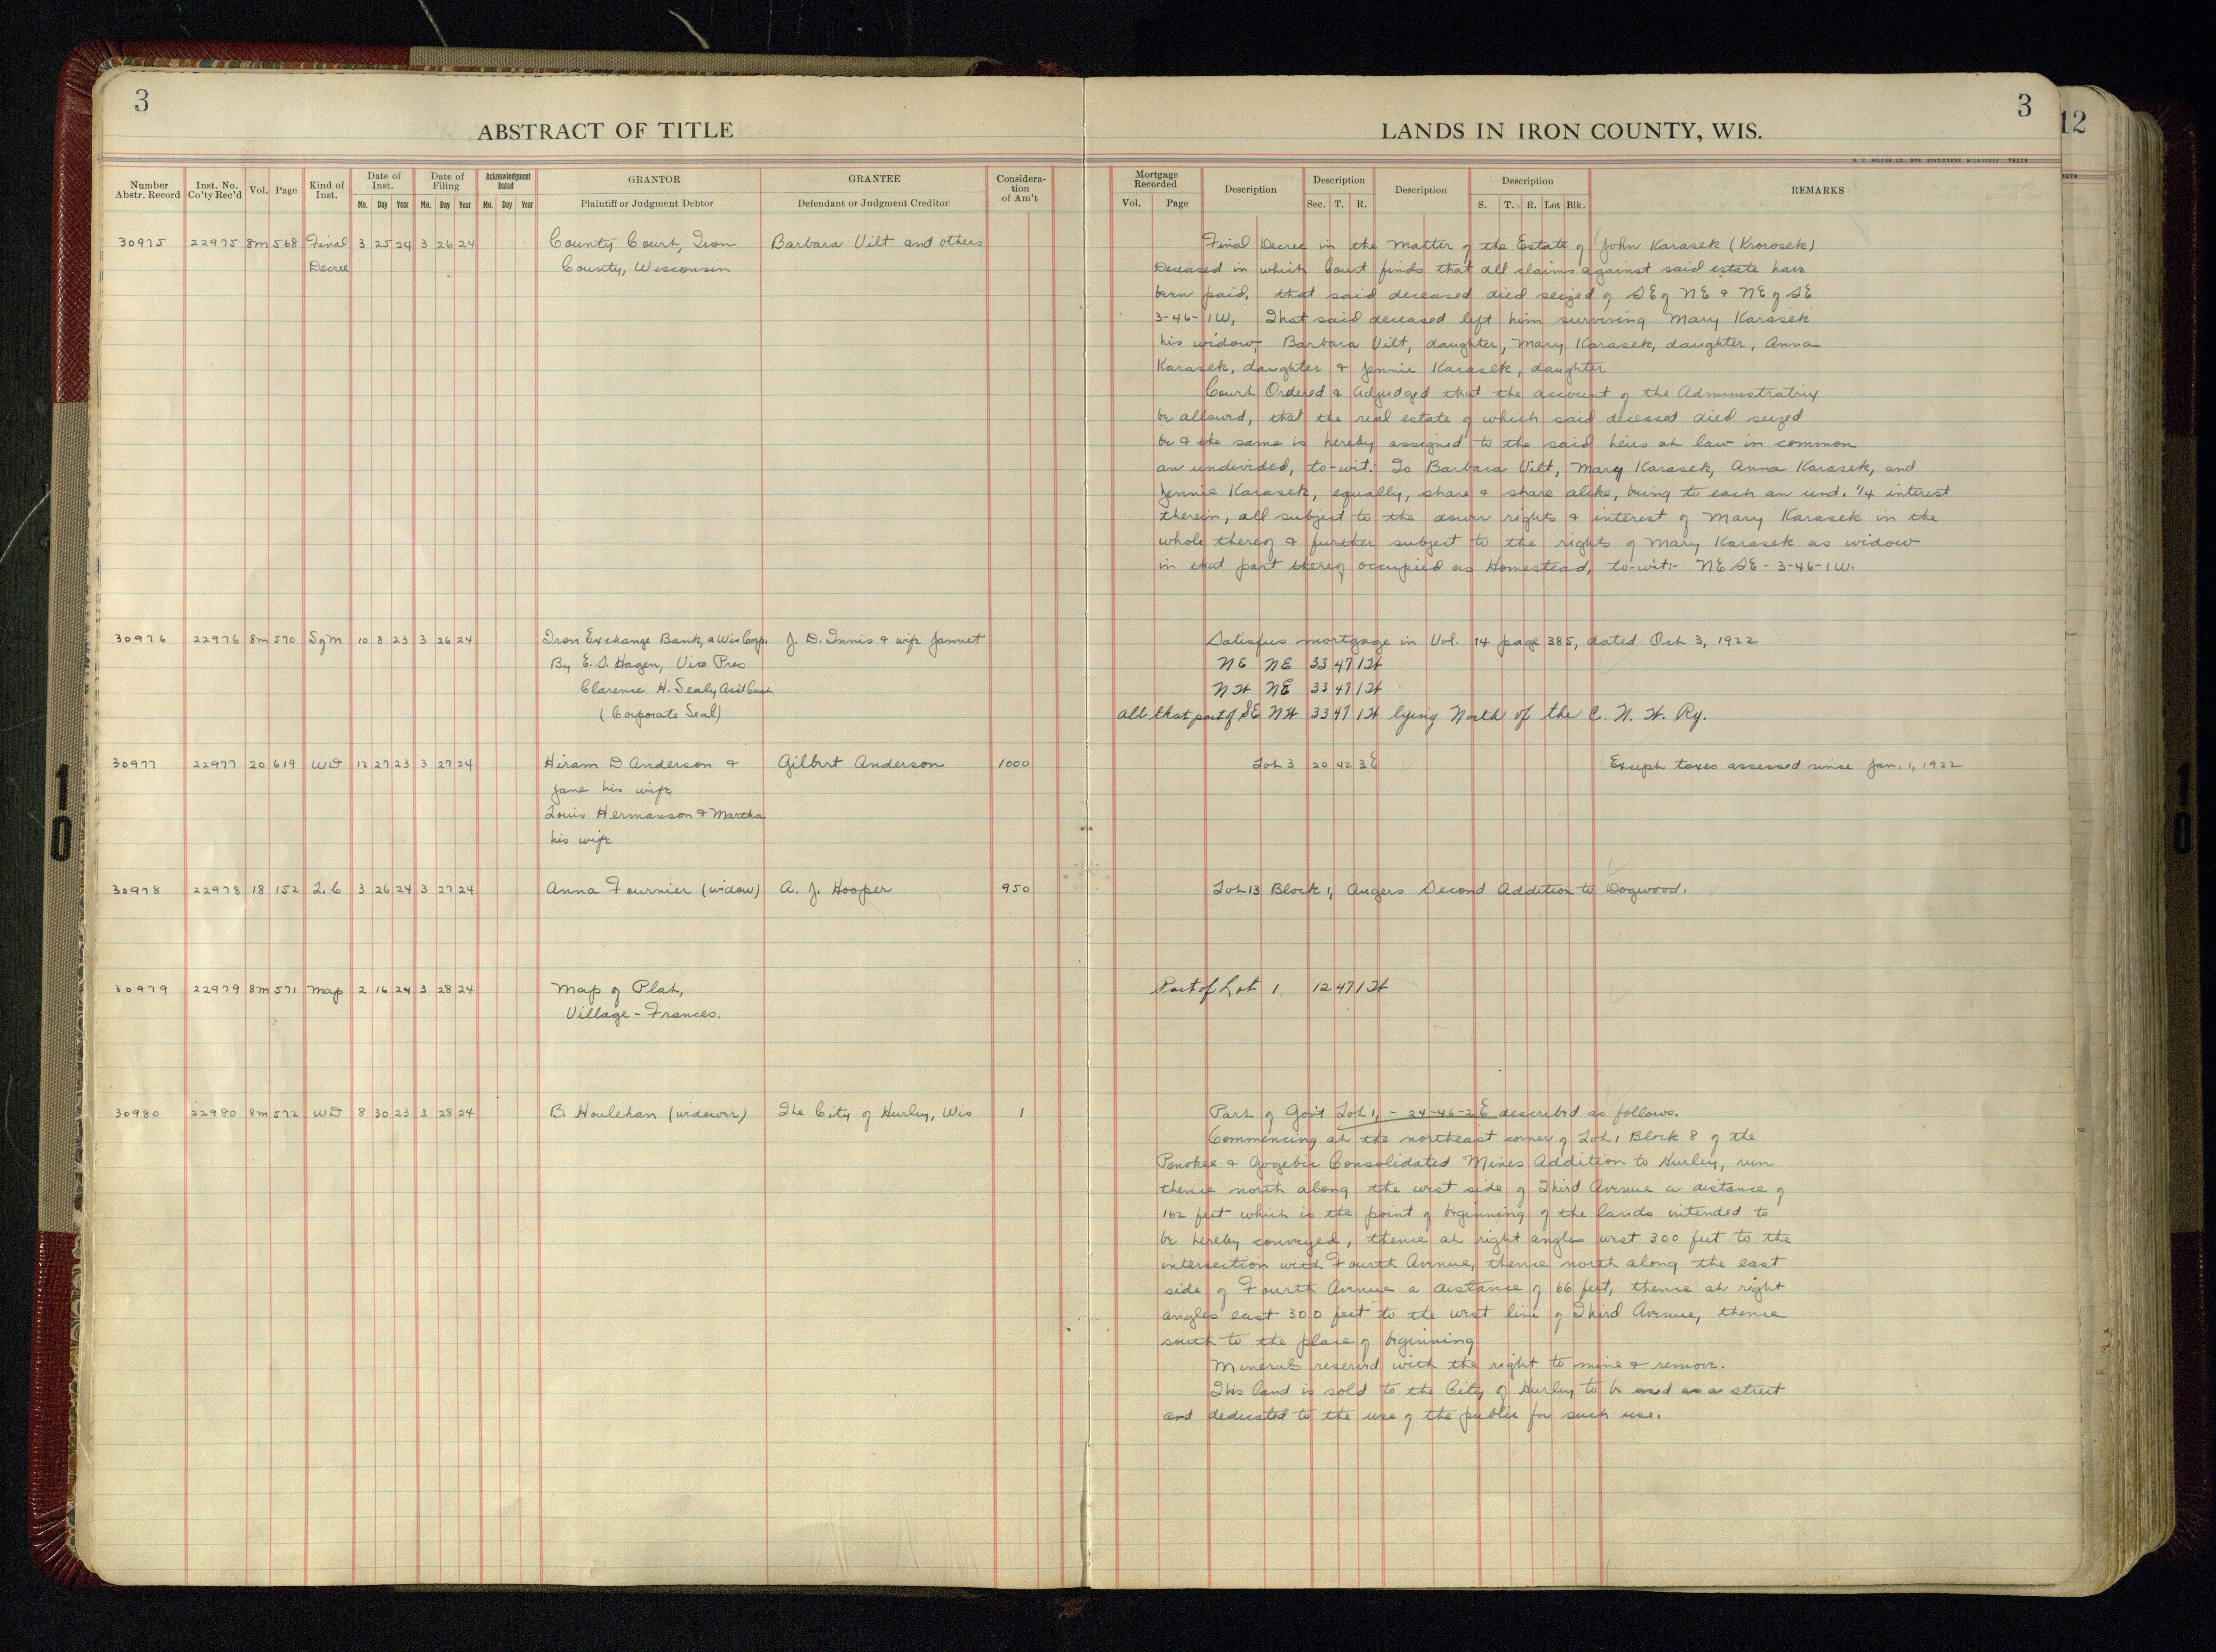 3
ABSTRACT OF TITLE
Number Abstr. Record | Inst. No. Co'ty Rec'd | Vol. | Page | Kind of Inst. | Date of Inst. Mo. Day Year | Date of Filing Mo. Day Year | Acknowledgment Dated Mo. Day Year | GRANTOR Plaintiff or Judgment Debtor | GRANTEE Defendant or Judgment Creditor | Considera-tion of Am't
30975 22975 8m 568 Final 3 25 24 3 26 24 County Court, Iron Barbara Vilt and others
Decree County, Wisconsin
30976 22976 8m 570 Sgm 10 8 23 3 26 24 Iron Exchange Bank, a Wis Corp. J. D. Innis & wife Jannet
By E. S. Hagen, Vice Pres
Clarence H. Sealy Asst Cash.
(Corporate Seal)
30977 22977 20 619 WD 12 27 23 3 27 24 Hiram D Anderson & Gilbert Anderson 1000
Jane his wife
Louis Hermanson & Martha
his wife
30978 22978 18 152 L.C 3 26 24 3 27 24 Anna Fournier (widow) A. J. Hooper 950
30979 22979 8m 571 Map 2 16 24 3 28 24 Map of Plat,
Village - Frances.
30980 22980 8m 572 WD 8 30 23 3 28 24 B. Houlehan (widower) The City of Hurley, Wis 1
3
LANDS IN IRON COUNTY, WIS.
H. C. MILLER CO., MFG. STATIONERS, MILWAUKEE Y8278
Mortgage Recorded Vol. Page | Description | Description Sec. T. R. | Description | Description S. T. R. Lot Blk. | REMARKS
Final Decree in the Matter of the Estate of John Karasek (Krorosek)
Deceased in which Court finds that all claims against said estate have
been paid, that said deceased died seized of SE of NE & NE of SE
3-46-1W, That said deceased left him surviving Mary Karasek
his widow, Barbara Vilt, daughter, Mary Karasek, daughter, Anna
Karasek, daughter & Jennie Karasek, daughter
Court Ordered & Adjudged that the account of the Administratrix
be allowed, that the real estate of which said deceased died seized
be & the same is hereby assigned to the said heirs at law in common
an undivided, to-wit: To Barbara Vilt, Mary Karasek, Anna Karasek, and
Jennie Karasek, equally, share & share alike, being to each an und. 1/4 interest
therein, all subject to the dower rights & interest of Mary Karasek in the
whole thereof & further subject to the rights of Mary Karasek as widow
in that part thereof occupied as Homestead, to-wit:- NE SE - 3-46-1W.
Satisfies mortgage in Vol. 14 page 385, dated Oct 3, 1922
NE NE 33 47 1W
NW NE 33 47 1W
all that part of SE NW 33 47 1W lying North of the C. N. W. Ry.
Lot 3 20 42 3E Except taxes assessed since Jan. 1, 1922
Lot 13 Block 1, Augers Second Addition to Dogwood.
Part of Lot 1 12 47 1W
Part of Gov't Lot 1, - 24-46-2E described as follows.
Commencing at the northeast corner of Lot 1 Block 8 of the
Penokee & Gogebic Consolidated Mines Addition to Hurley, run
thence north along the west side of Third Avenue a distance of
162 feet which is the point of beginning of the lands intended to
be hereby conveyed, thence at right angles west 300 feet to the
intersection with Fourth Avenue, thence north along the east
side of Fourth Avenue a distance of 66 feet, thence at right
angles east 300 feet to the west line of Third Avenue, thence
south to the place of beginning
Minerals reserved with the right to mine & remove.
This land is sold to the City of Hurley to be used as a street
and dedicated to the use of the public for such use.
12
10
10